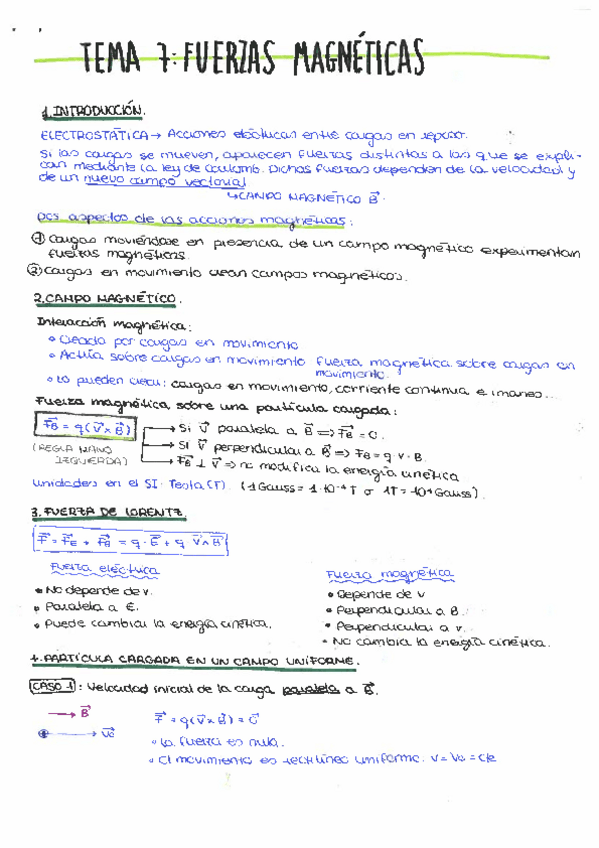 TEMA 7: FUERZAS MAGNÉTICAS
1. INTRODUCCIÓN.
ELECTROSTÁTICA → Acciones eléctricas entre cargas en reposo.
Si las cargas se mueven, aparecen fuerzas distintas a las que se expli-
can mediante la ley de Coulomb. Dichas fuerzas dependen de la velocidad y
de un nuevo campo vectorial
↳ CAMPO MAGNÉTICO B⃗.
Dos aspectos de las acciones magnéticas:
① Cargas moviéndose en presencia de un campo magnético experimentan
fuerzas magnéticas.
② Cargas en movimiento crean campos magnéticos.
2. CAMPO MAGNÉTICO.
Interacción magnética:
• Creada por cargas en movimiento
• Actúa sobre cargas en movimiento fuerza magnética sobre cargas en
movimiento.
• Lo pueden crear: cargas en movimiento, corriente continua e imanes...
Fuerza magnética sobre una partícula cargada:
F⃗B = q(v⃗ x B⃗) → Si v⃗ paralela a B⃗ => F⃗B = 0.
(REGLA MANO → Si v⃗ perpendicular a B⃗ => FB = q·v·B.
IZQUIERDA) → F⃗B ⊥ v⃗ => no modifica la energía cinética
Unidades en el SI: Tesla (T). (1 Gauss = 1·10⁻⁴ T o 1T = 10⁴ Gauss).
3. FUERZA DE LORENTZ.
F⃗ = F⃗E + F⃗B = q·E⃗ + q v⃗ x B⃗
Fuerza eléctrica Fuerza magnética
• No depende de v. • Depende de v
• Paralela a E. • Perpendicular a B.
• Puede cambiar la energía cinética. • Perpendicular a v.
• No cambia la energía cinética.
4. PARTÍCULA CARGADA EN UN CAMPO UNIFORME.
CASO 1: Velocidad inicial de la carga paralela a B⃗.
→ B⃗ F⃗ = q(v⃗ x B⃗) = 0⃗
→ v⃗o • La fuerza es nula.
• El movimiento es rectilíneo uniforme. v = vo = cte